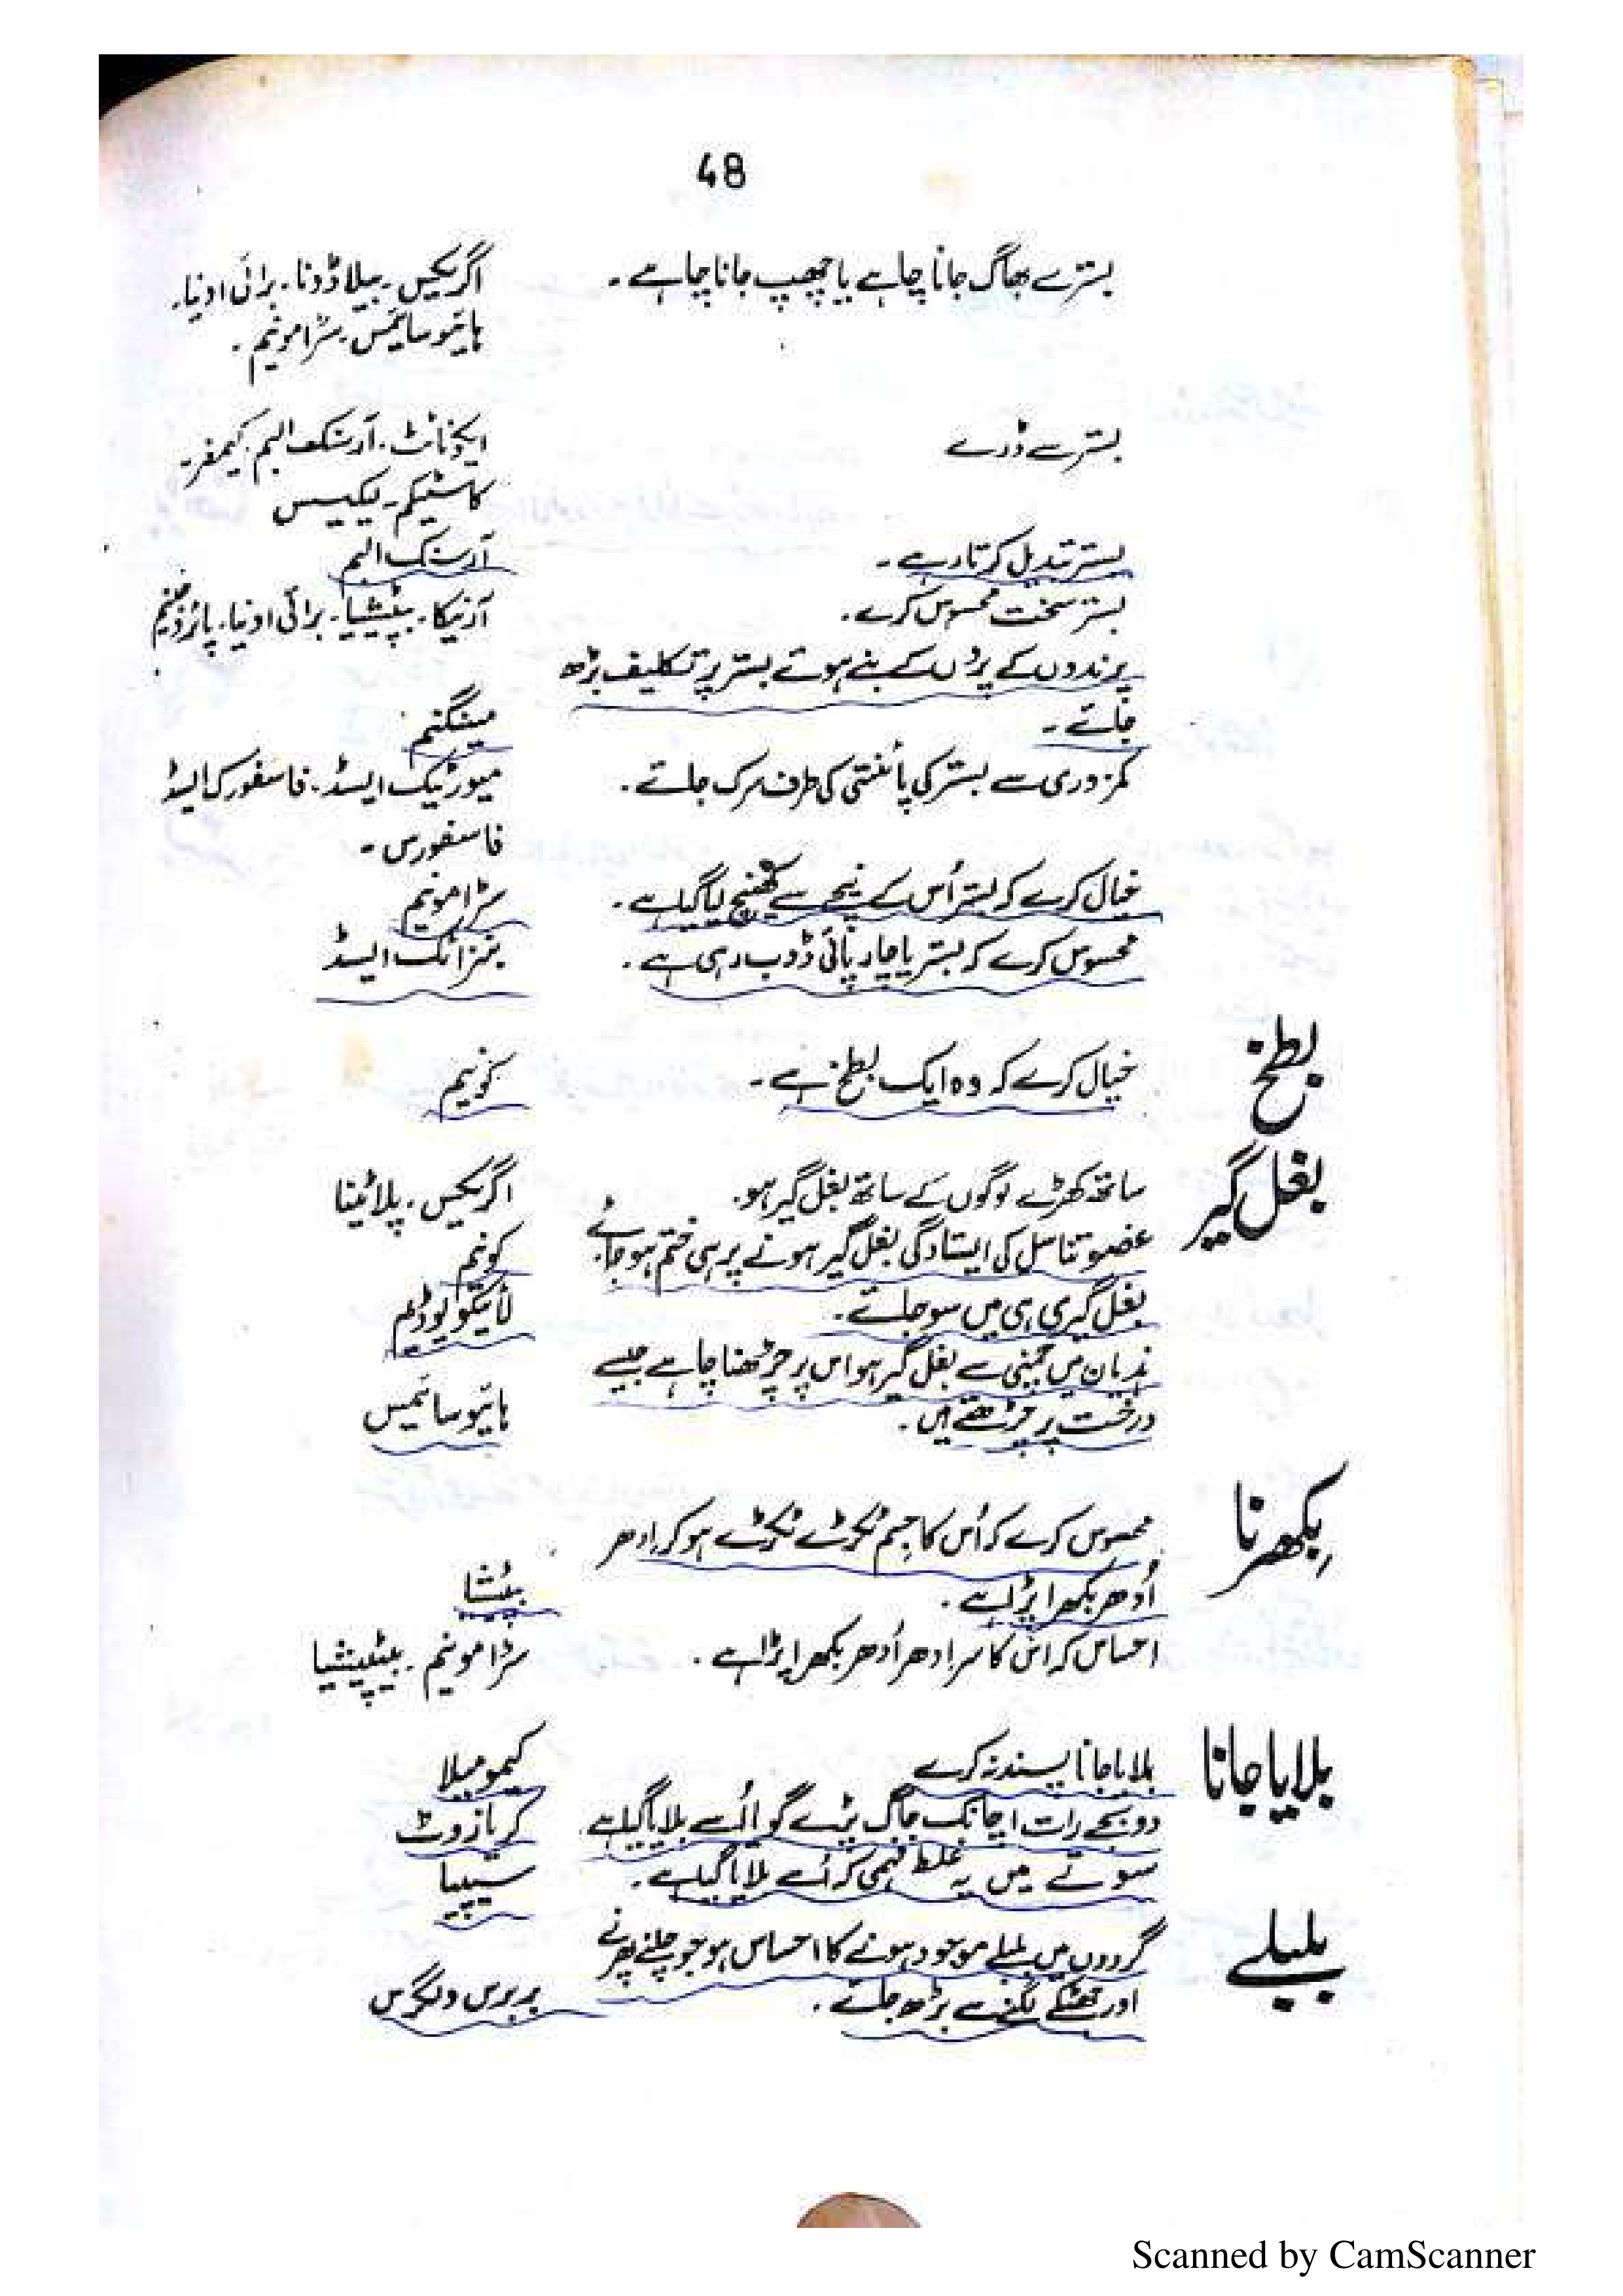 48
بستر سے بھاگ جانا چاہے یا چھپ جانا چاہے ۔ اگریکس ۔ بیلاڈونا ۔ برائی اونیا ۔
ہائیوسائمس ۔ سٹرامونیم ۔
بستر سے ڈرے ایکونائٹ ۔ آرسنک البم ۔ کیمفر ۔
کاسٹیکم ۔ لیکیسس
بستر تبدیل کرتا رہے ۔ آرسنک البم
بستر سخت محسوس کرے ۔ آرنیکا ۔ بپٹیشیا ۔ برائی اونیا ۔ پائروجینم
پرندوں کے پروں کے بنے ہوئے بستر پر تکلیف بڑھ
جائے ۔ مینگنم
کمزوری سے بستر کی پائنتی کی طرف سرک جائے ۔ میورٹیک ایسڈ ۔ فاسفورک ایسڈ
فاسفورس ۔
خیال کرے کہ بستر اُس کے نیچے سے کھینچ لیا گیا ہے ۔ سٹرامونیم
محسوس کرے کہ بستر یا چارپائی ڈوب رہی ہے ۔ بنزائک ایسڈ
بطخ خیال کرے کہ وہ ایک بطخ ہے ۔ کونیم
بغل گیر ساتھ کھڑے لوگوں کے ساتھ بغل گیر ہو ۔ اگریکس ۔ پلاٹینا
عضو تناسل کی ایستادگی بغل گیر ہونے پر ہی ختم ہو جائے ۔ کونیم
بغل گیری ہی میں سو جائے ۔ لائیکوپوڈیم
ہذیان میں چمنی سے بغل گیر ہو اس پر چڑھنا چاہے جیسے
درخت پر چڑھتے ہیں ۔ ہائیوسائمس
بکھرنا محسوس کرے کہ اُس کا جسم ٹکڑے ٹکڑے ہو کر اِدھر
اُدھر بکھرا پڑا ہے ۔
احساس کہ اس کا سر اِدھر اُدھر بکھرا پڑا ہے ۔ سٹرامونیم ۔ بپٹیشیا
بلایا جانا بلایا جانا پسند نہ کرے کیمومیلا
دو بجے رات اچانک جاگ پڑے گویا اُسے بلایا گیا ہے کریازوٹ
سوتے میں یہ غلط فہمی کہ اُسے بلایا گیا ہے ۔ سیپیا
بلبلے گردوں میں بلبلے موجود ہونے کا احساس ہو جو چلنے پھرنے
اور جھٹکے لگنے سے بڑھ جائے ۔ بربرس ولگرس
Scanned by CamScanner